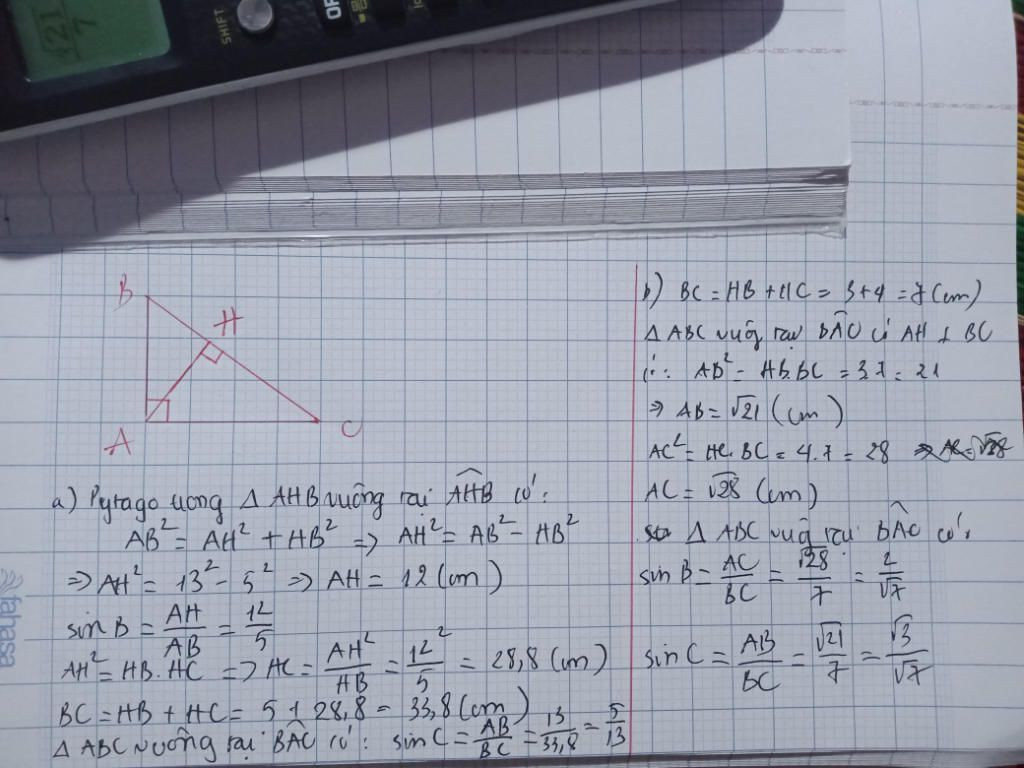 √21/7
SHIFT
B
H
A
C
a) Pytago trong △ AHB vuông tại AHB có:
AB² = AH² + HB² => AH² = AB² - HB²
=> AH² = 13² - 5² => AH = 12 (cm)
sin B = AH/AB = 12/5
AH² = HB. HC => HC = AH²/HB = 12²/5 = 28,8 (cm)
BC = HB + HC = 5 + 28,8 = 33,8 (cm)
△ ABC vuông tại BAC có: sin C = AB/BC = 13/33,8 = 5/13
b) BC = HB + HC = 3+4 = 7 (cm)
△ ABC vuông tại BAC có AH ⊥ BC
có: AB² = HB.BC = 3.7 = 21
=> AB = √21 (cm)
AC² = HC. BC = 4.7 = 28
AC = √28 (cm)
△ ABC vuôg tại BAC có:
sin B = AC/BC = √28/7 = 2/√7
sin C = AB/BC = √21/7 = √3/√7
fahasa